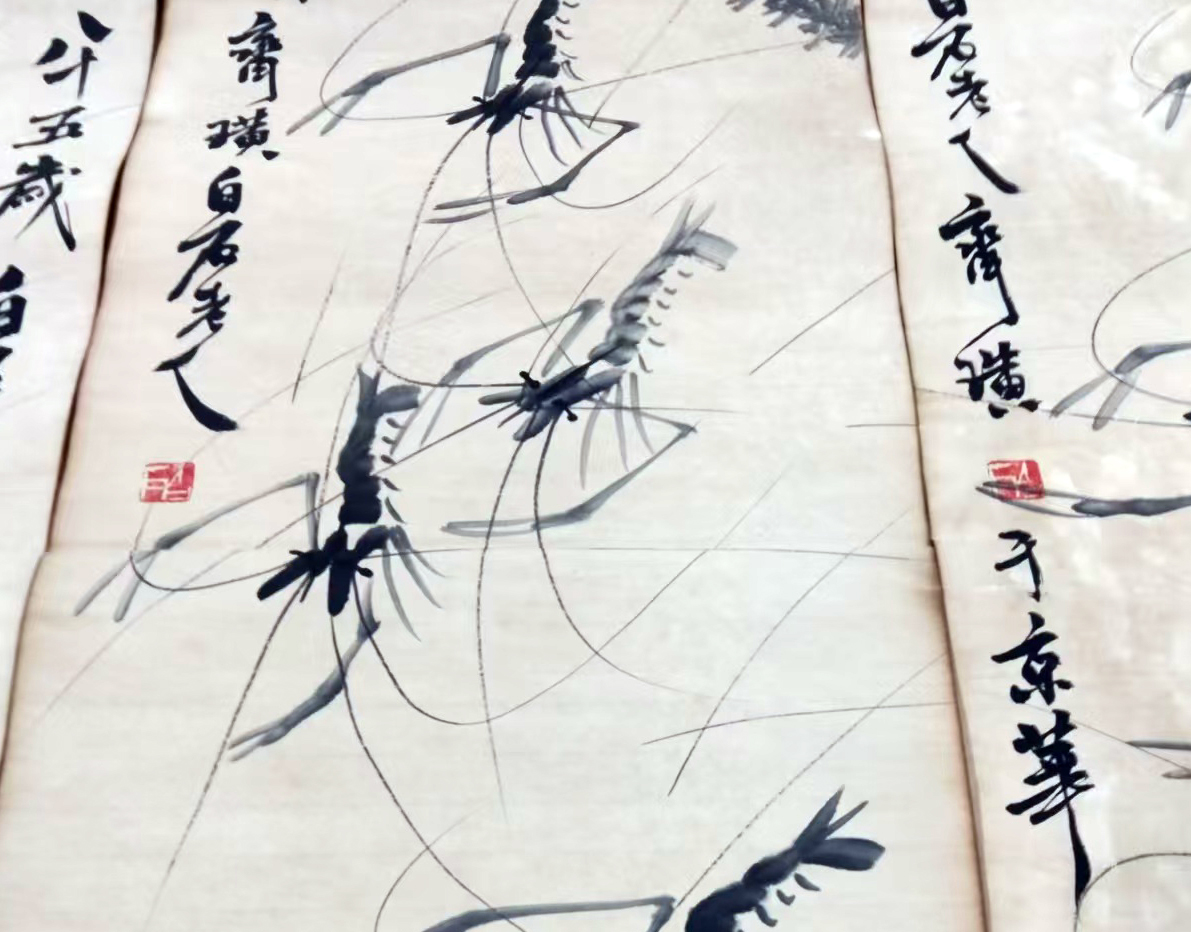 白石老人齊璜
于京華
齊璜白石老人
八十五歲白